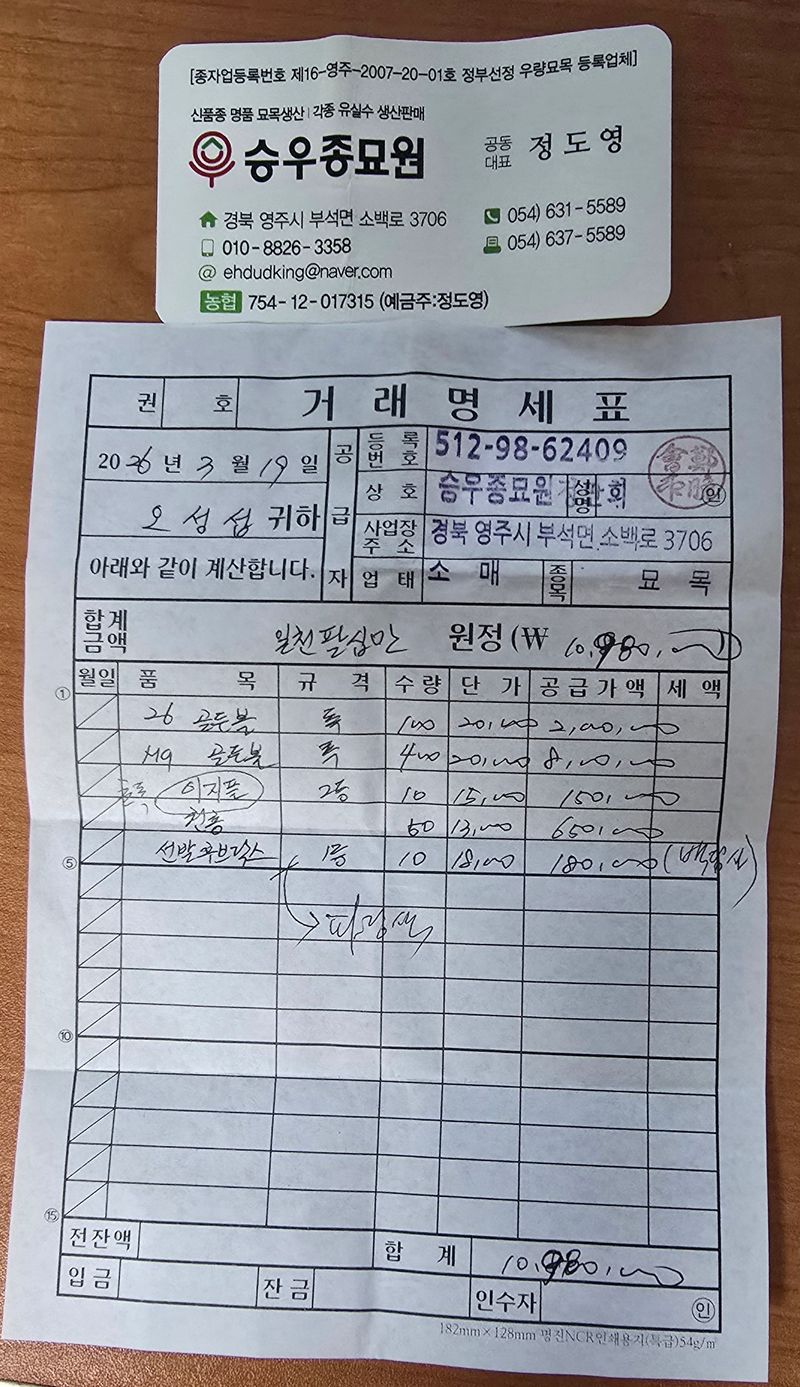 [종자업등록번호 제16-영주-2007-20-01호 정부선정 우량묘목 등록업체]
신품종 명품 묘목생산 | 각종 유실수 생산판매
승우종묘원
공동대표 정도영
경북 영주시 부석면 소백로 3706
054) 631-5589
010-8826-3358
054) 637-5589
@ ehdudking@naver.com
농협 754-12-017315 (예금주:정도영)
권 호 거래명세표
2026년 3월 19일
오성섭 귀하
아래와 같이 계산합니다.
공급자
등록번호 512-98-62409
상호 승우종묘원 성명 회 인
사업장주소 경북 영주시 부석면 소백로 3706
업태 소매 종목 묘목
합계금액 일천팔십만 원정 (₩ 10,980,000)
월일 품목 규격 수량 단가 공급가액 세액
① 26 골든볼 특 100 20,000 2,000,000
M9 골든볼 특 400 20,000 8,000,000
이지플 2등 10 15,000 150,000
50 13,000 650,000
⑤ 1등 10 18,000 180,000
파랑색
⑩
⑮
전잔액 합계 10,980,000
입금 잔금 인수자 인
182mm×128mm 명진NCR인쇄용지(특급)54g/㎡